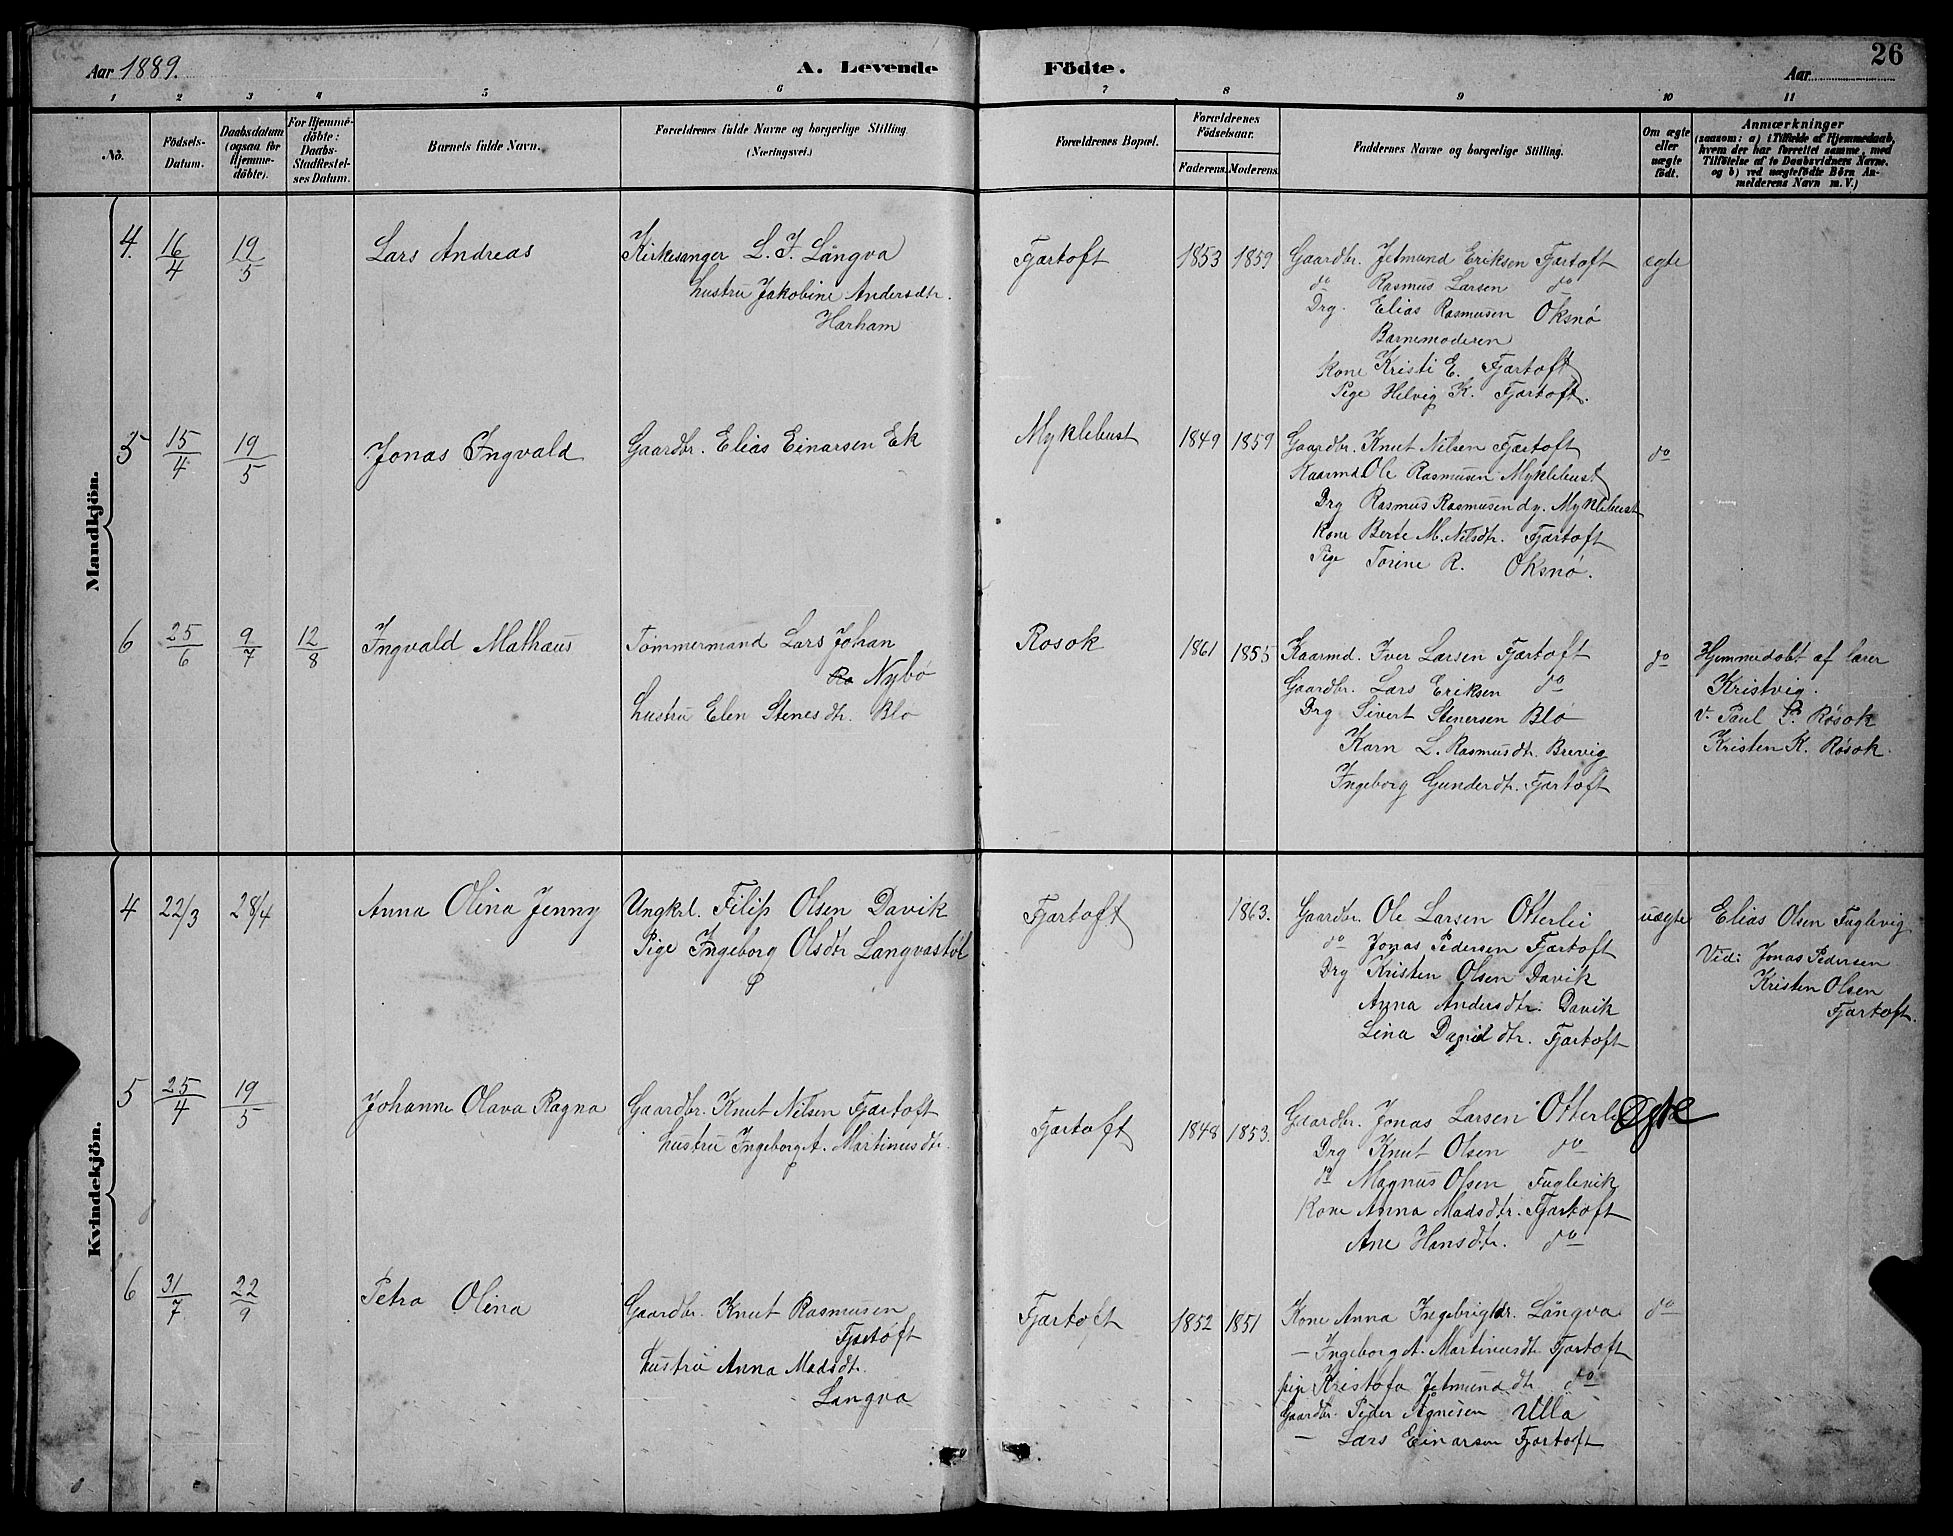 Aar 1889.
A. Levende Födte.
Aar
26
1 2 3 4 5 6 7 8 9 10 11
No.
Födsels-Datum.
Daabsdatum (ogsaa for Hjemme-döbte).
For Hjemme-döbte: Daabs-Stadfæstel-ses Datum.
Barnets fulde Navn.
Forældrenes fulde Navne og borgerlige Stilling (Næringsvei.)
Forældrenes Bopæl.
Forældrenes Födselsaar.
Faderens. Moderens.
Faddernes Navne og borgerlige Stilling.
Om ægte eller uægte födt.
Anmærkninger
(saasom: a) i Tilfælde af Hjemmedaab, hvem der har forrettet samme, med Tilföielse af to Daabsvidners Navne. og b) ved uægtefödte Börn An-melderens Navn m. V.)
Mandkjön.
4. 16/4 19/5 Lars Andreas
Kirkesanger L. J. Långva
hustru Jakobine Andersdtr.
Harham
Fjærtoft 1853 1859
Gaardbr. Jetmund Eriksen Fjærtoft
do Rasmus Larsen do
Drg. Elias Rasmusen Oksnø
Barnemoderen
Kone Kristi E. Fjærtoft
Pige Helvig K. Fjærtoft.
egte
5 15/4 19/5 Jonas Ingvald
Gaardbr. Elias Einarsen Ek
Myklebust 1849 1859
Gaardbr. Knut Nilsen Fjærtoft
Kaarmd Ole Rasmusen Myklebust
Drg Rasmus Rasmusen d.y. Myklebust
Kone Berte M. Nilsdtr. Fjærtoft
Pige Torine R. Oksnø.
do
6 25/6 9/7 12/8 Ingvald Mathæus
Tømmermand Lars Johan
Nybø
hustru Elen Stenesdtr. Blø
Rosok 1861 1855
Kaarmd. Iver Larsen Fjærtoft
Gaardbr. Lars Eriksen do
Drg Sivert Stenersen Blø
Karn L. Rasmusdtr. Brevig
Ingeborg Gunderdtr. Fjærtoft
do
Hjemmedøbt af lærer
Kristvig.
v. Paul P. Røsok
Kristen K. Røsok.
Kvindekjön.
4 22/3 28/4 Anna Olina Jenny
Ungkrl. Filip Olsen Davik
Pige Ingeborg Olsdtr Langvastøl
Fjærtoft 1863.
Gaardbr. Ole Larsen Otterlei
do Jonas Pedersen Fjærtoft
Drg Kristen Olsen Davik
Anna Andersdtr. Davik
Lina David dtr. Fjærtoft
uægte
Elias Olsen Fuglevig
Vid: Jonas Pedersen
Kristen Olsen
Fjærtoft.
5 25/4 19/5 Johanne Olava Ragna
Gaardbr. Knut Nilsen Fjærtoft
hustru Ingeborg A. Martinusdtr.
Fjærtoft 1848 1853.
Gaardbr. Jonas Larsen Otterlei
Drg Knut Olsen do
do Magnus Olsen Fuglevik
Kone Anna Madsdtr. Fjærtoft
Ane Hansdtr. do
Egte
6 31/7 22/9 Petra Olina
Gaardbr. Knut Rasmusen
Fjærtoft
hustru Anna Madsdt.
Langva
Fjærtoft 1852 1851
Kone Anna Ingebrigtdr. Långva
— Ingeborg A. Martinusdt Fjærtoft
pige Kristofa Jetmund dt do
Gaardbr. Peder Agnesen Ulla
— Lars Einarsen Fjærtoft
do